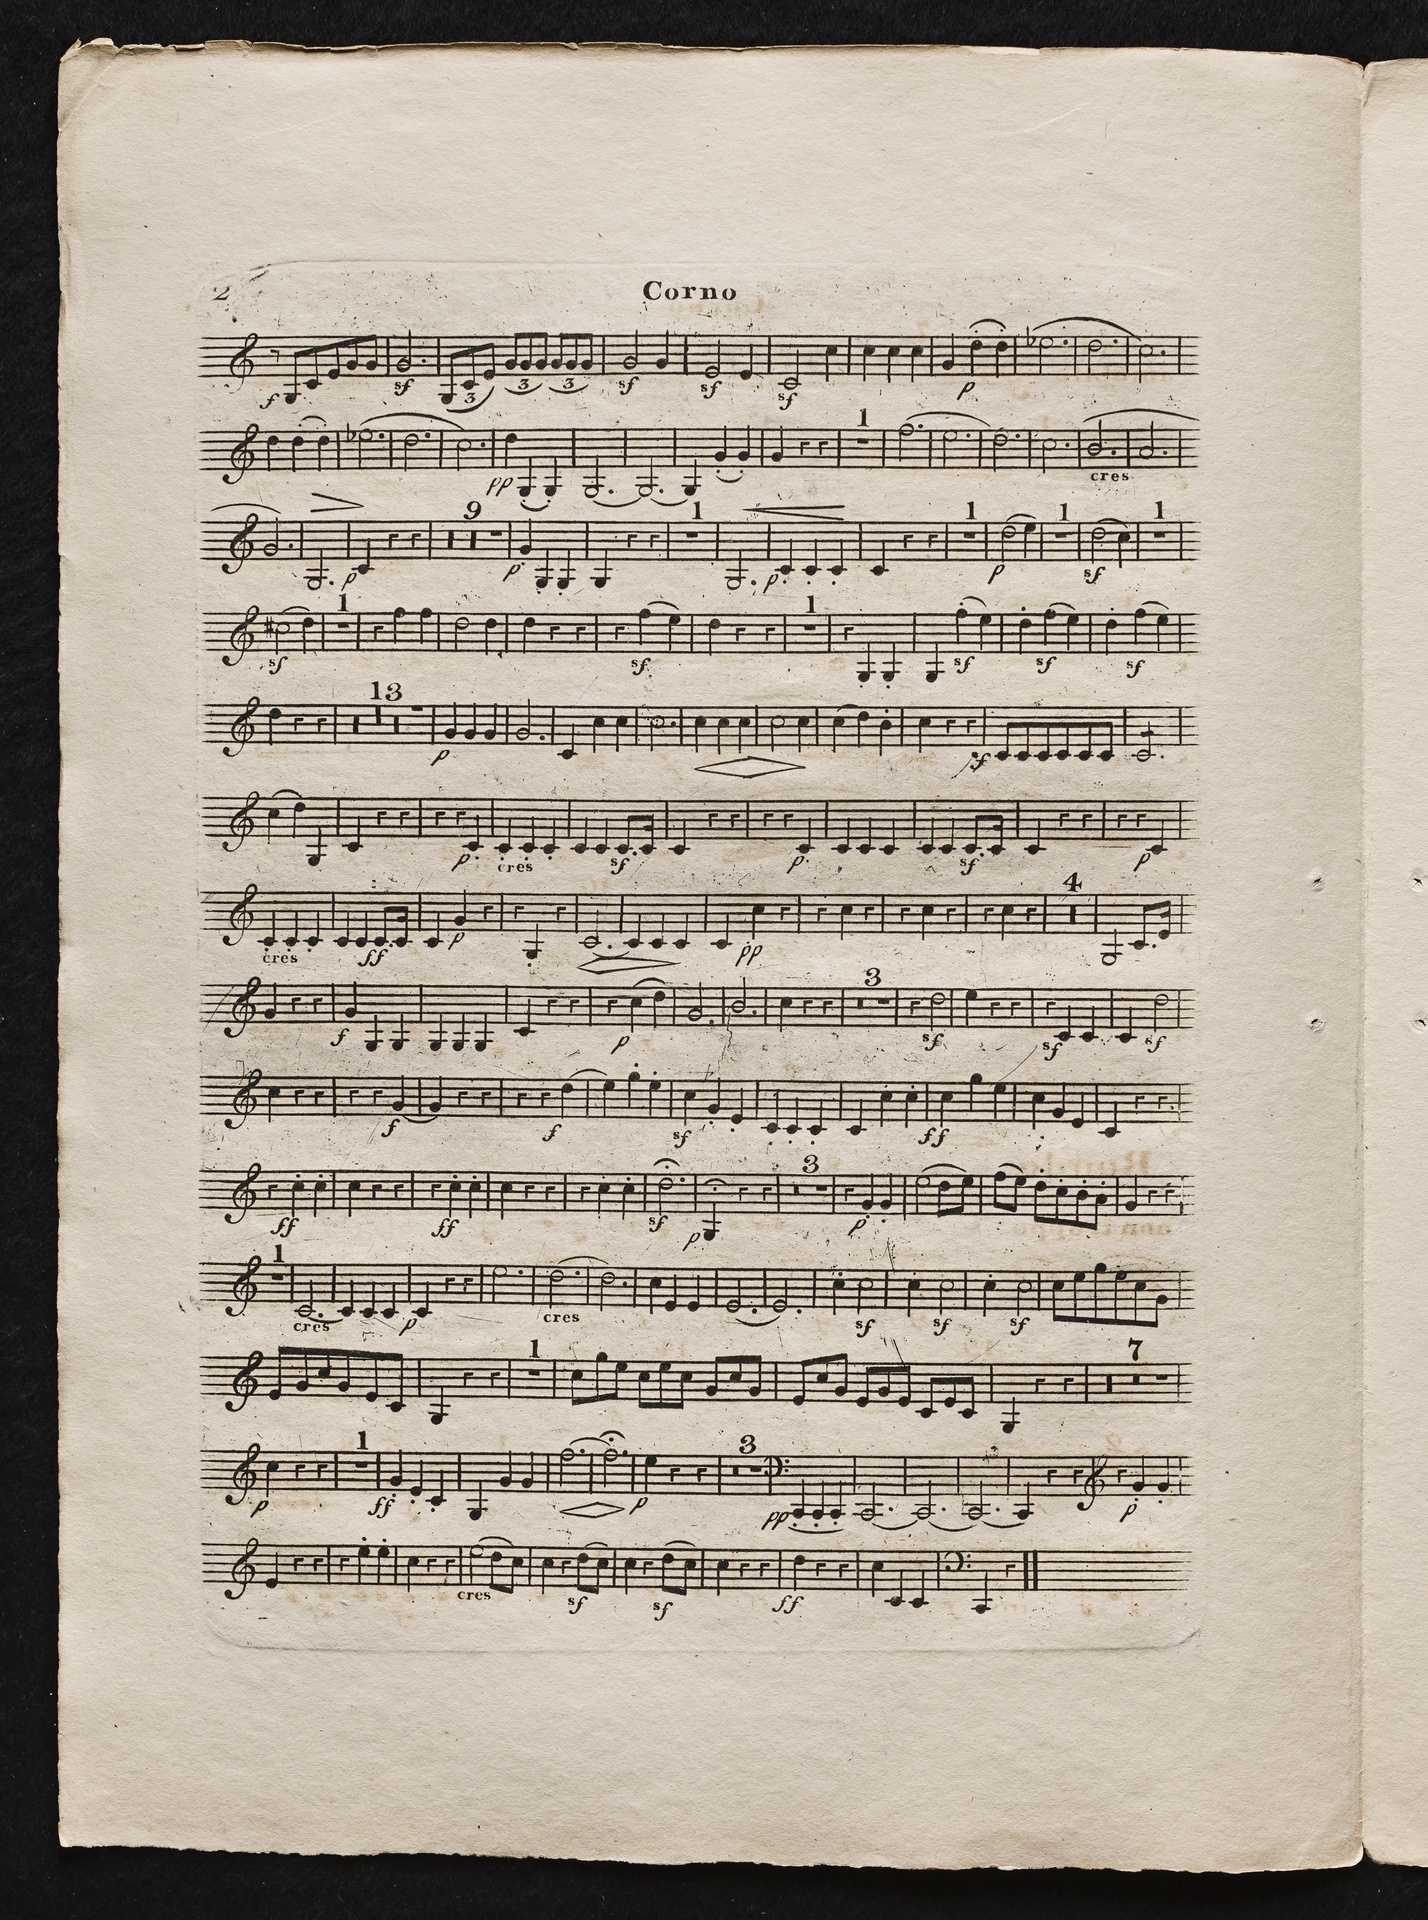 2 Corno
f sf 3 3 3 sf sf sf p
pp 1 cres
p 9 p 1 p 1 p 1 sf 1
sf 1 sf 1 sf sf sf
13 p sf
p cres sf p sf p
cres ff p pp 4
f p 3 sf sf sf
f f sf ff
ff ff sf p 3 p
1 cres p cres sf sf sf
1 7
p 1 ff p 3 pp p
cres sf sf ff